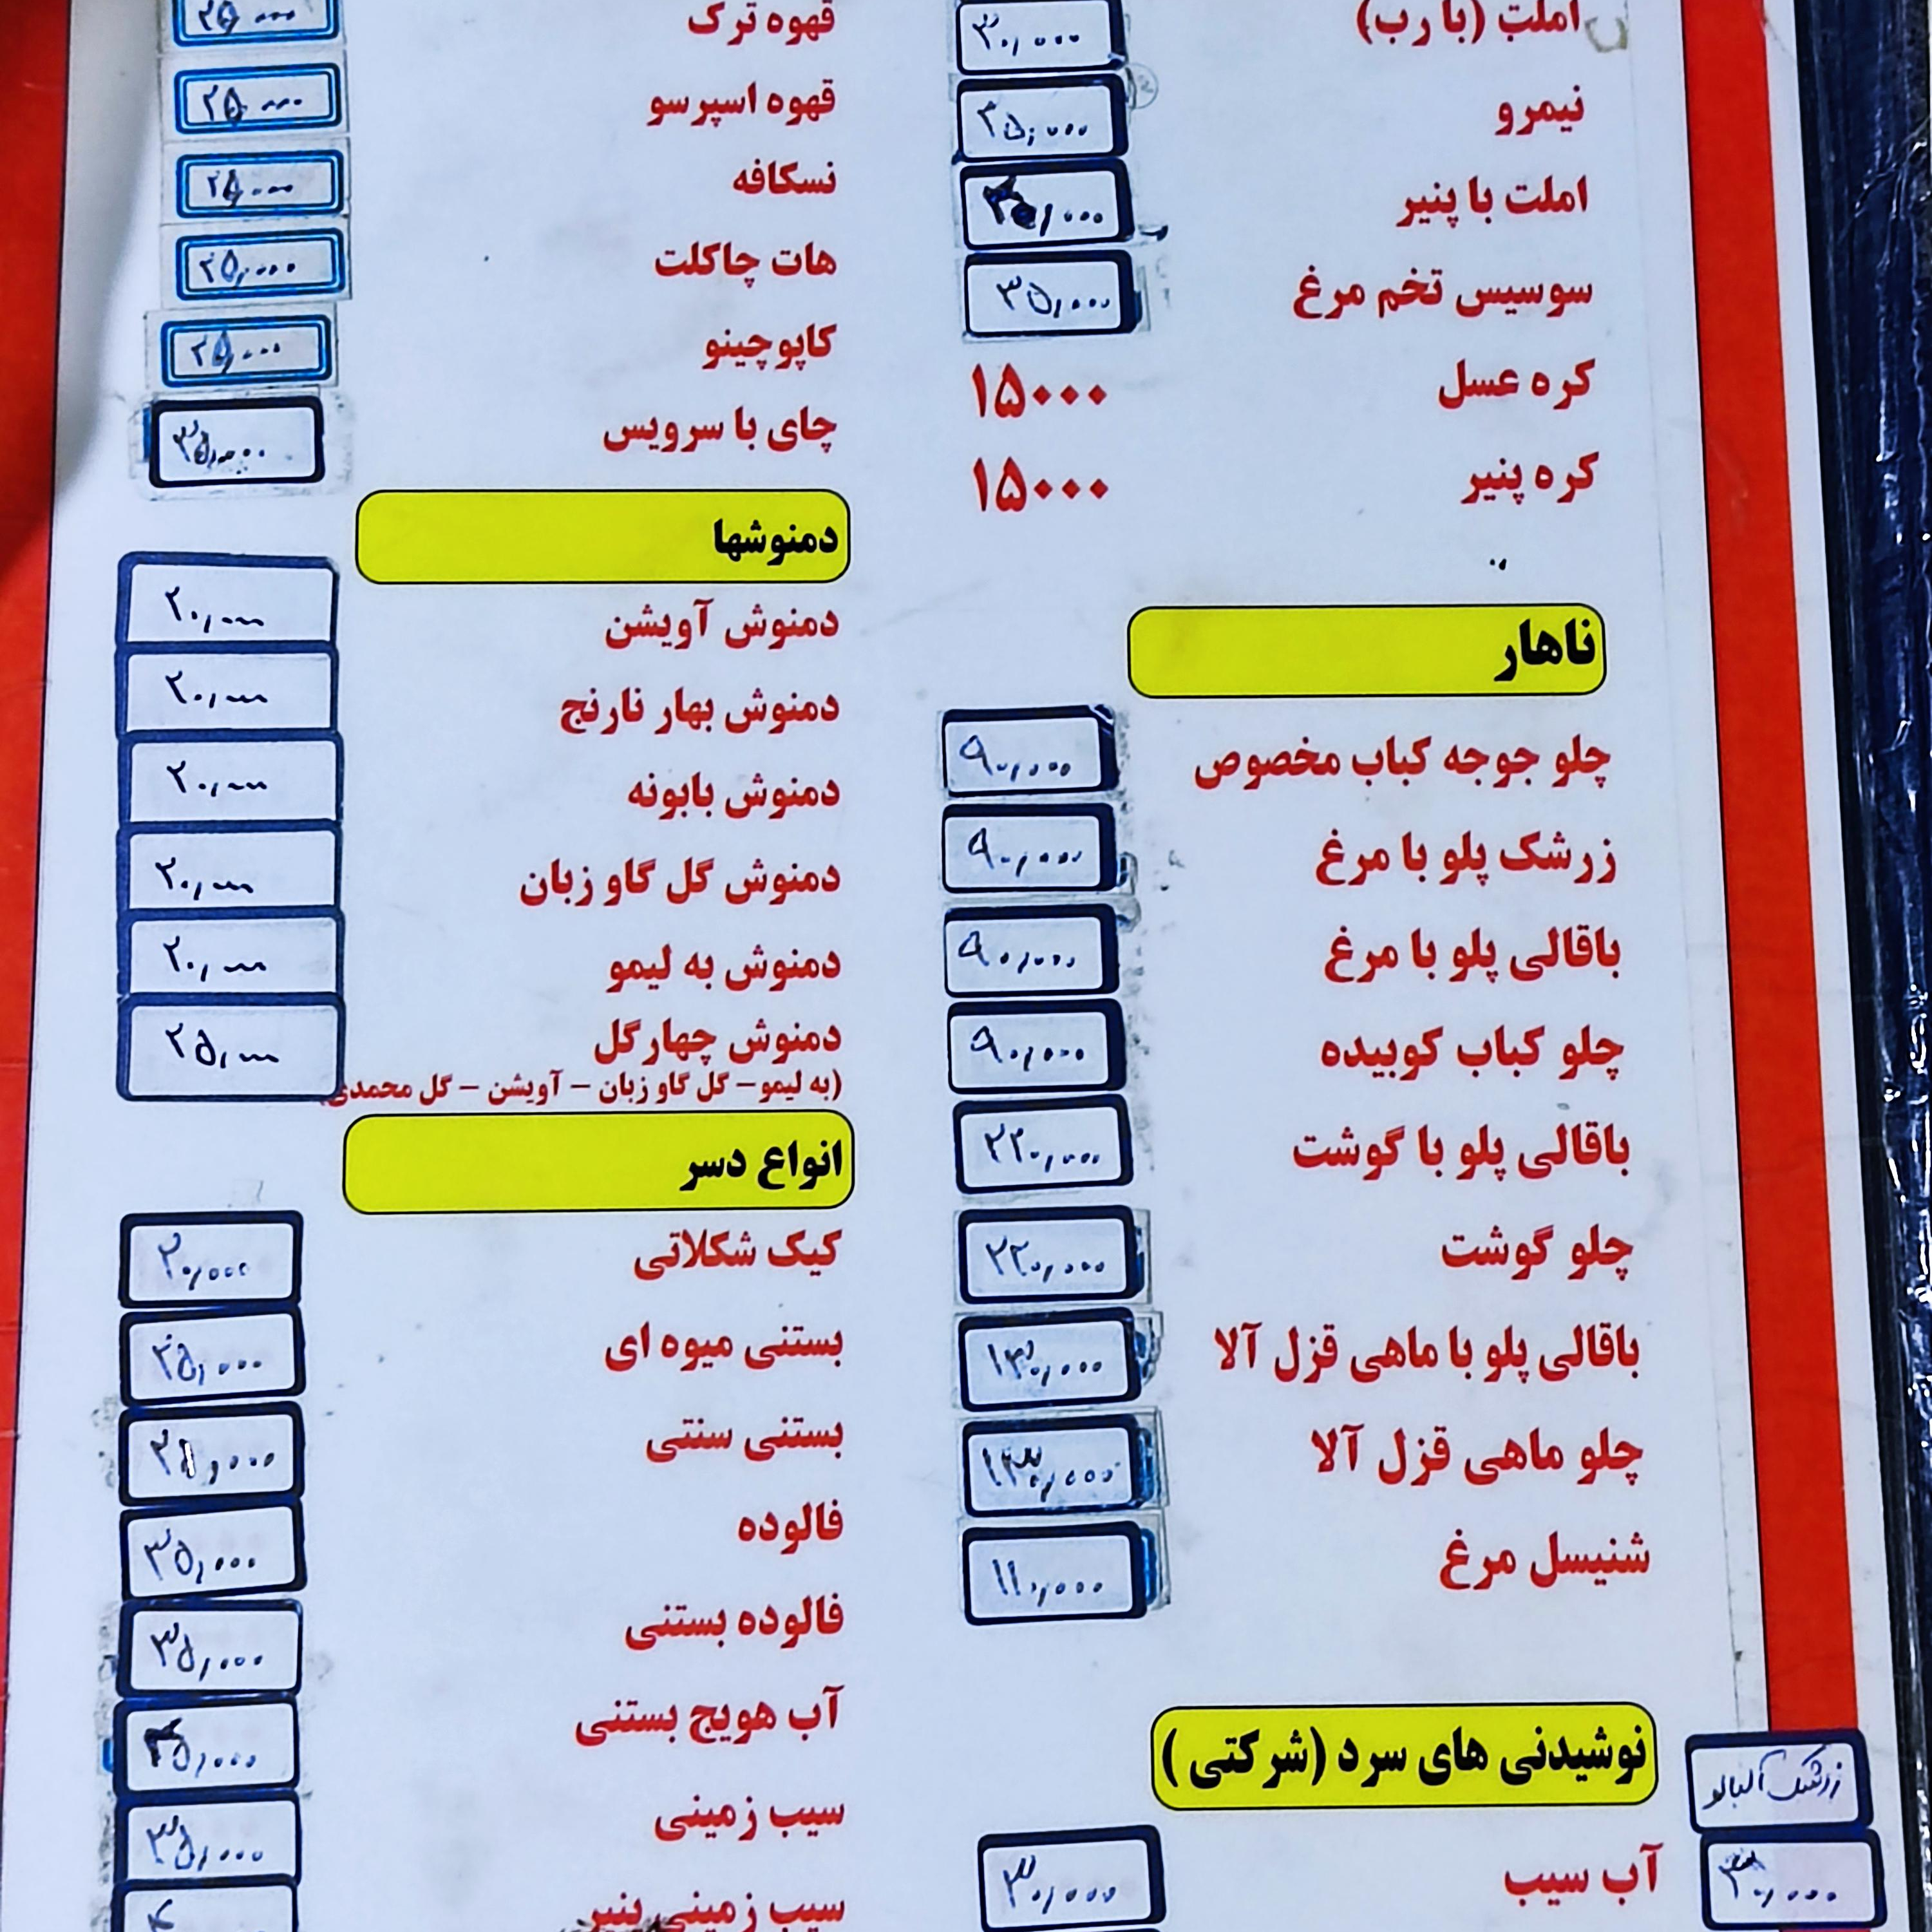 املت (با رب) ۳۰,۰۰۰
نیمرو ۳۵,۰۰۰
املت با پنیر
سوسیس تخم مرغ ۳۵,۰۰۰
کره عسل ۱۵۰۰۰
کره پنیر ۱۵۰۰۰
ناهار
چلو جوجه کباب مخصوص ۹۰,۰۰۰
زرشک پلو با مرغ ۹۰,۰۰۰
باقالی پلو با مرغ ۹۰,۰۰۰
چلو کباب کوبیده ۹۰,۰۰۰
باقالی پلو با گوشت ۲۲۰,۰۰۰
چلو گوشت ۲۲۰,۰۰۰
باقالی پلو با ماهی قزل آلا ۱۳۰,۰۰۰
چلو ماهی قزل آلا ۱۳۰,۰۰۰
شنیسل مرغ ۱۱۰,۰۰۰
نوشیدنی های سرد (شرکتی)
زرشک آلبالو
۳۰,۰۰۰
آب سیب ۳۰,۰۰۰
قهوه ترک ۲۵۰۰۰
قهوه اسپرسو ۲۵۰۰۰
نسکافه ۲۵,۰۰۰
هات چاکلت ۲۵,۰۰۰
کاپوچینو ۲۵,۰۰۰
چای با سرویس ۳۵,۰۰۰
دمنوشها
دمنوش آویشن ۲۰,۰۰۰
دمنوش بهار نارنج ۲۰,۰۰۰
دمنوش بابونه ۲۰,۰۰۰
دمنوش گل گاو زبان ۲۰,۰۰۰
دمنوش به لیمو ۲۰,۰۰۰
دمنوش چهارگل ۲۵,۰۰۰
(به لیمو – گل گاو زبان – آویشن – گل محمدی)
انواع دسر
کیک شکلاتی ۲۰,۰۰۰
بستنی میوه ای ۲۵,۰۰۰
بستنی سنتی ۲۵,۰۰۰
فالوده ۳۵,۰۰۰
فالوده بستنی ۳۵,۰۰۰
آب هویج بستنی
سیب زمینی ۳۵,۰۰۰
سیب زمینی پنیر